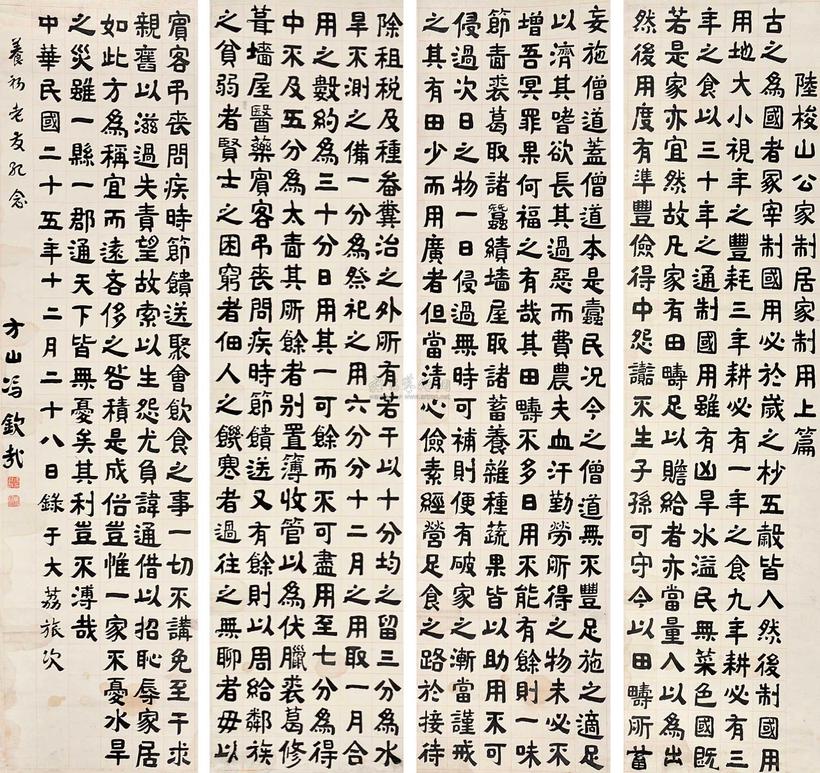 陸梭山公家制居家制用上篇
古之為國者冢宰制國用必於歲之杪五穀皆入然後制國用
用地大小視年之豐耗三年耕必有一年之食九年耕必有三
年之食以三十年之通制國用雖有凶旱水溢民無菜色國既
若是家亦宜然故凡家有田疇足以贍給者亦當量入以為出
然後用度有準豐儉得中怨讟不生子孫可守今以田疇所蓄
妄施僧道蓋僧道本是蠹民况今之僧道無不豐足施之適足
以濟其嗜欲長其過惡而費農夫血汗勤勞所得之物未必不
增吾冥罪果何福之有哉其田疇不多日用不能有餘則一味
節嗇裘葛取諸蠶績墻屋取諸蓄養雜種蔬果皆以助用不可
侵過次日之物一日侵過無時可補則便有破家之漸當謹戒
之其有田少而用廣者但當清心儉素經營足食之路於接待
除租税及種畚糞治之外所有若干以十分均之留三分為水
旱不測之備一分為祭祀之用六分分十二月之用取一月合
用之數約為三十分日用其一可餘而不可盡用至七分為得
中不及五分為太嗇其所餘者别置簿收管以為伏臘裘葛修
葺墻屋醫藥賓客弔喪問疾時節饋送又有餘則以周給鄰族
之貧弱者賢士之困窮者佃人之饑寒者過往之無聊者毋以
賓客弔喪問疾時節饋送聚會飲食之事一切不講免至干求
親舊以滋過失責望故索以生怨尤負諱通借以招恥辱家居
如此方為稱宜而遠吝侈之咎積是成俗豈惟一家不憂水旱
之災雖一縣一郡通天下皆無憂矣其利豈不溥哉
中華民國二十五年十二月二十八日錄于大荔旅次
養初老友紀念
方山馮欽哉